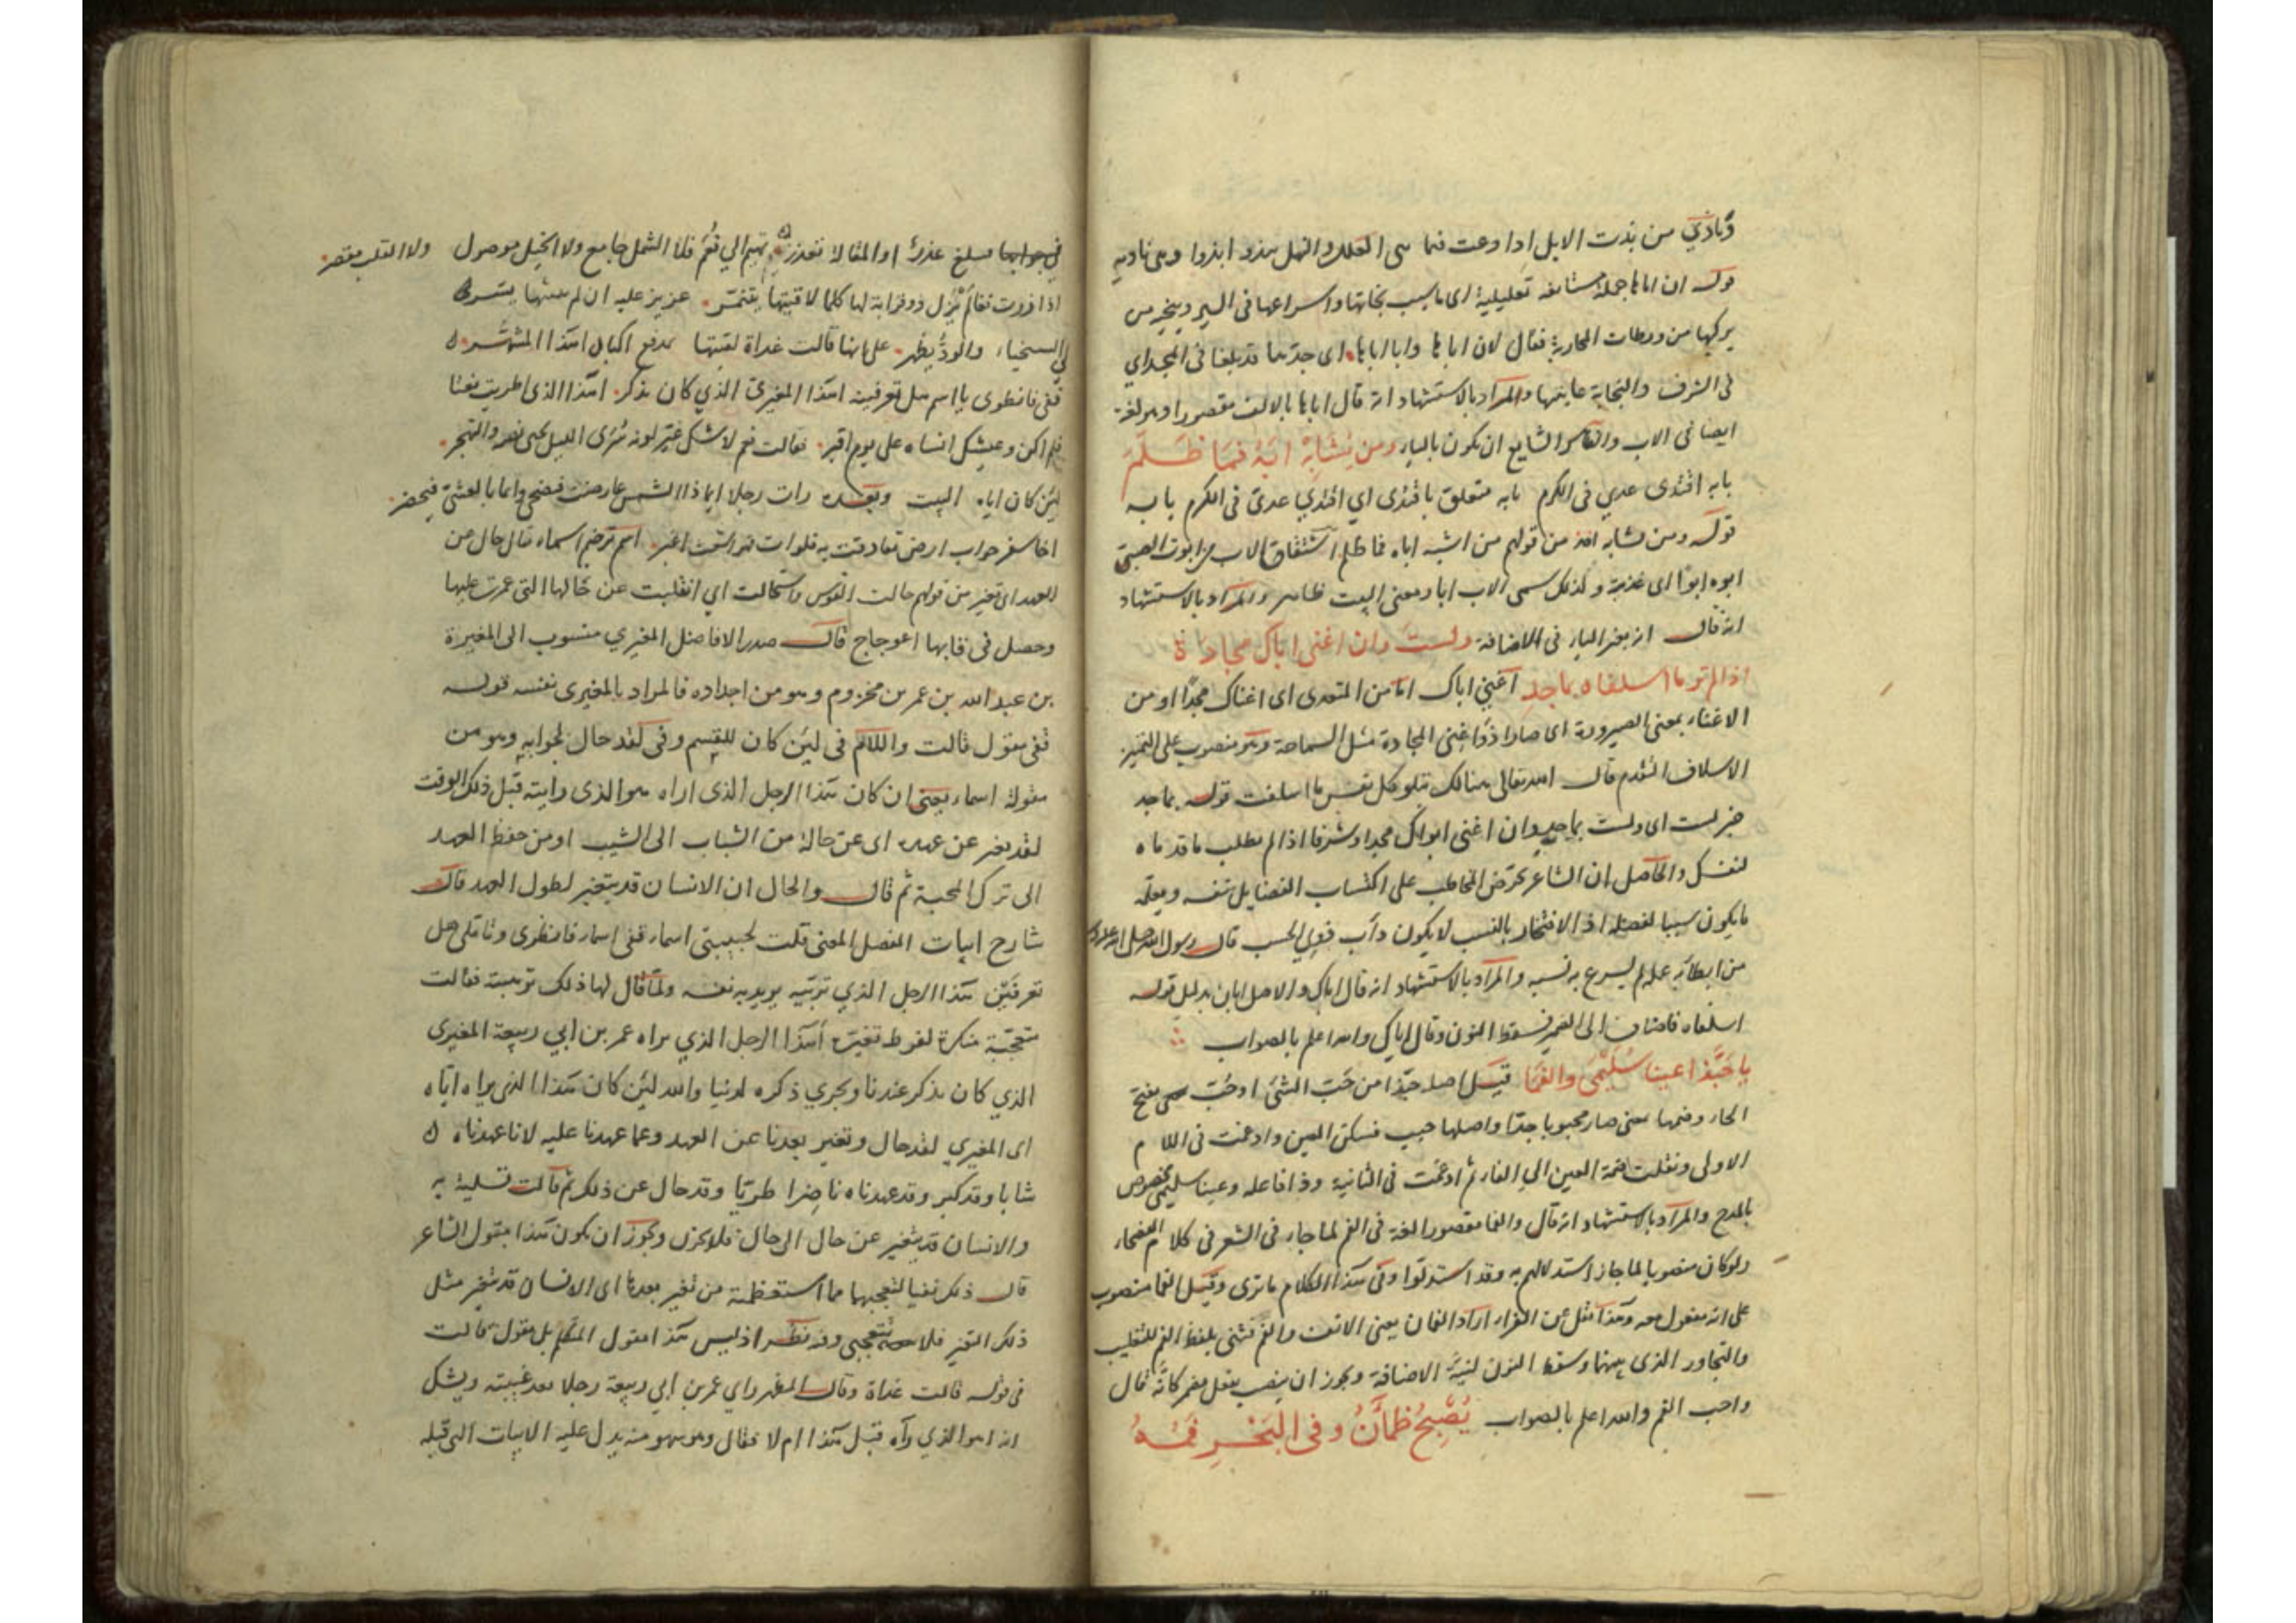 وناذي من بذت الابل اذا وعت فما سى العلل والنهل ببذو ابذوا وهى ناديه
قوله ان اباها جملة مستانفه تعليلية اى ما سبب نجاتها واسراعها فى السير وينجو من
يركبها من ورطات المحاربة فقال لان اباها وابا اباها اى جدتها قد بلغا فى المجد اي
فى الشرف والنجابة غايتهما والمراد بالاستشهاد انه قال اباها بالالف مقصورا وهو لغة
ايضا فى الاب والقياس الشايع ان يكون بالياء ومن يُشَابِهْ اَبَهُ فَمَا ظَلَمَ
بابه اقتدى عدي فى الكرم بابه متعلق باقتدى اي اقتدي عدى فى الكرم بابه
قوله ومن يشابه اخذ من قولهم من اشبه اباه فما ظلم اشتقاق الاب من ابوت الصبى
ابوه ابوًا اى غذيته وكذلك سمى الاب ابا ومعنى البيت ظاهر والمراد بالاستشهاد
انه قال ابه بغير الياء فى الاضافة ولستَ وان اغنى اباك مجادة
اذا لم تر ما اسلفاه بماجد اغنى اباك اما من المتعدى اى اغناك مجدًا او من
الاغناء بمعنى الصيرورة اى صارا ذوا غنى المجادة مثل السماحة وهو منصوب على التميز
الاسلاف التقدم قال الله تعالى هنالك تبلو كل نفس ما اسلفت قوله بماجد
خبر لست اى ولست بماجد وان اغنى ابواك مجدا وشرفا اذا لم تطلب ما قدماه
لنفسك والحاصل ان الشاعر يحرض المخاطب على اكتساب الفضايل بنفسه ويعلمه
ما يكون سببا لفضله اذ الافتخار بالنسب لا يكون دأب ذوي الحسب قال رسول الله صلى الله عليه وسلم
من ابطأ به عمله لم يسرع به نسبه والمراد بالاستشهاد انه قال اباك والاصل ابان بدليل قوله
اسلفاه فاضاف الى الضمير فسقط النون وقال اباك والله اعلم بالصواب
يا حَبَّذَا عينا سُلَيْمَى والفَمَا قيل اصل حبذا من حَبَّ الشئ او حُبَّ بفتح
الحاء وضمها بمعنى صار محبوبا جدا واصلها حبب فسكن العين وادغمت فى اللام
الاولى ونقلت ضمة العين الى الفاء ثم ادغمت فى الثانية وذا فاعله وعينا سليمى مخصوص
بالمدح والمراد بالاستشهاد انه قال والفما مقصورا لغة فى الفم لما جاء فى الشعر فى كلام الفصحاء
ولو كان منصوبا لما جاز استدلالهم به وقد استدلوا وفى هذا الكلام ما ترى وقيل الفما منصوب
على انه مفعول معه وهذا نقل عن الفراء اراد الفمان يعنى الانف والفم فثنى بلفظ الفم للتغليب
والتجاور الذى بينهما وسقط النون لنيّة الاضافة ويجوز ان ينصب بفعل مضمر كانّه قال
واحب الفم والله اعلم بالصواب يُصْبِحُ ظَمْآنُ وفى البَحْرِ فَمُهُ
فى جوابها مبلغ عذرك او المقالة تعذر تهيم الى نُعْم فلا الشمل جامع ولا الحبل موصول ولا القلب مقصر
اذا زرت نعما لم يزل ذو قرابة لها كلما لاقيتها يتنمر عزيز عليه ان الم ببيتها يسر
لي الشحناء والودّ يظهر على انها قالت غداة لقيتها بمدفع اكنان اهذا المشهر
قفى فانظرى يا اسم هل تعرفينه اهذا المغيرى الذي كان يذكر اهذا الذى اطريت نعتا
فلم اكن وعيشك انساه على يوم اقبر فقالت نعم لا شك غيّر لونه سُرَى الليل يحيى نصه والتهجر
لئن كان اياه البيت وبعده رات رجلا ايما اذا الشمس عارضت فيضحى واما بالعشى فيخصر
اخا سفر جواب ارض تقاذفت به فلوات فهو اشعث اغبر اسم ترخيم اسماء قال حال عن
العهد اى تغير من قولهم حالت القوس واستحالت اي انقلبت عن حالها التى غمرت عليها
وحصل فى قابها اعوجاج قال صدر الافاضل المغيري منسوب الى المغيرة
بن عبد الله بن عمر بن مخزوم وهو من اجداده فالمراد بالمغيرى نفسه قوله
قفى مقول قالت واللام فى لئن كان للقسم وفى لقد حال لجوابه وهو من
مقولة اسماء يعنى ان كان هذا الرجل الذى اراه هو الذى رايته قبل ذلك الوقت
لقد تغير عن عهده اى عن حاله من الشباب الى الشيب او من حفظ العهد
الى ترك المحبة ثم قال والحال ان الانسان قد يتغير لطول العهد قال
شارح ابيات المفصل المعنى قلت لحبيبتى اسماء قفى اسماء فانظرى وتاملى هل
تعرفين هذا الرجل الذي تريه يريد به نفسه ولما قال لها ذلك تربيت فقالت
متعجبة منكرة لفرط تغيره أهذا الرجل الذي نراه عمر بن ابي ربيعة المغيرى
الذي كان يذكر عندنا ويجري ذكره لدينا والله لئن كان هذا الذى نراه اياه
اى المغيري لقد حال وتغير بعدنا عن العهد وعما عهدنا عليه لانا عهدناه
شابا وقد كبر وقد عهدناه ناضرا طريّا وقد حال عن ذلك ثم قالت تسلية به
والانسان قد يتغير عن حال الى حال فلا تحزن ويجوز ان يكون هذا مقول الشاعر
قال ذلك نفيا لتعجبها مما استعظمته من تغير بعدها اى الانسان قد يتغير مثل
ذلك التغير فلا تتعجبى وفيه نظر اذ ليس هذا مقول المتكلم بل مقول قالت
فى قوله قالت غداة وقال المظهر راي عمر بن ابي ربيعة رجلا بعد غيبته ويشك
انه اهو الذي رآه قبل هذا ام لا فقال وهو سهو منه يدل عليه الابيات التى قبله